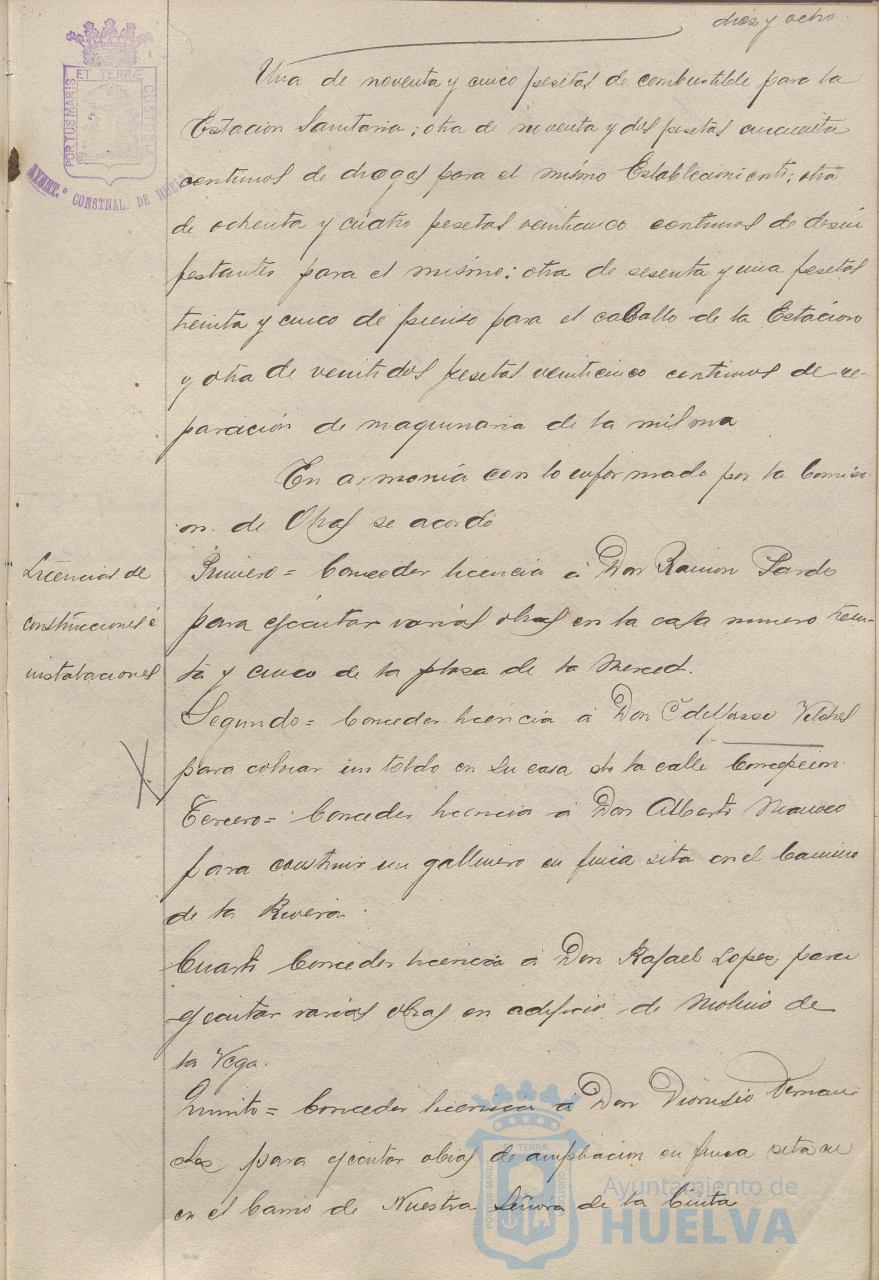 diez y ocho
ET TERRÆ
PORTUS MARIS
CUSTODIA
AYUNT.º CONSTNAL. DE HUELVA
Una de noventa y cinco pesetas de combustible para la
Estacion Sanitaria; otra de noventa y dos pesetas cincuenta
centimos de drogas para el mismo Establecimiento; otra
de ochenta y cuatro pesetas veinticinco centimos de desin
fectantes para el mismo; otra de sesenta y una pesetas
treinta y cinco de pienso para el caballo de la Estacion
y otra de veintidos pesetas veinticinco centimos de re-
paración de maquinaria de la misma
En armonía con lo informado por la Comisi-
on de Obras se acordó
Licencias de
construcciones é
instalaciones
Primero = Conceder licencia á Don Ramon Pardo
para ejecutar varias obras en la casa numero trein-
ta y cinco de la plaza de la Merced.
Segundo = Conceder licencia á Don Vilches
para colocar un toldo en su casa de la calle Concepcion.
Tercero = Conceder licencia á Don Alberto
para construir un gallinero en finca sita en el Camino
de la Rivera.
Cuarto Conceder licencia á Don Rafael Lopez para
ejecutar varias obras en edificio de Molino de
la Vega.
Quinto = Conceder licencia á Don Dionisio Fernan
dez para ejecutar obras de ampliacion en finca sita en
en el barrio de Nuestra Señora de la Cinta
Ayuntamiento de
HUELVA